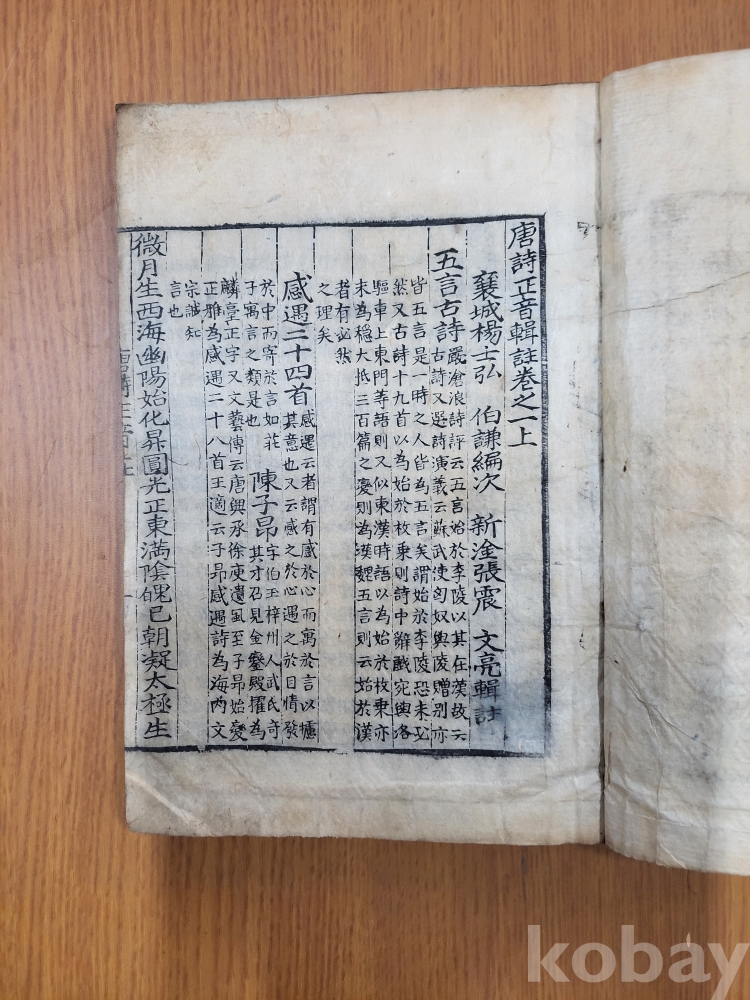 唐詩正音輯註卷之一上
襄城楊士弘 伯謙編次 新淦張震 文亮輯註
五言古詩
嚴滄浪詩評云五言始於李陵以其在漢故云
古詩又選詩演義云蘇武使匈奴與陵贈別亦
皆五言是一時之人皆為五言矣謂始於李陵恐未必
然又古詩十九首以為始於枚乘則詩中辭戱宛與洛
驅車上東門等語則又似東漢時語以為始於枚乘亦
未為穩大抵三百篇之變則為漢魏五言則云始於漢
者有必然
之理矣
感遇三十四首
感遇云者謂有感於心而寓於言以攄
其意也又云感之於心遇之於目情發
於中而寄於言如莊
子寓言之類是也
陳子昂
字伯玉梓州人武氏守
其才召見金鑾殿擢為
麟臺正字又文藝傳云唐興承徐庾遺風至子昂始變
正雅為感遇二十八首王適云子昂感遇詩為海內文
宗誠知
言也
微月生西海幽陽始化昇圓光正東滿陰魄已朝凝太極生
唐詩正音註
kobay